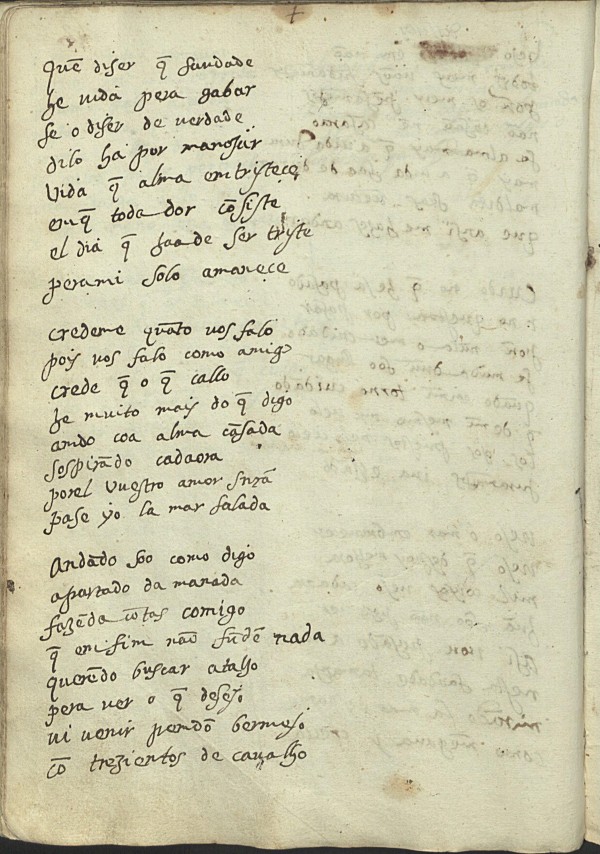 quẽ diser q̃ saudade
he vida pera gabar
se o diser de verdade
dilo ha por
vida q̃ alma entristeçe
enq̃ toda dor cõsiste
el dia q̃ ha de ser triste
pera mi solo amaneçe

credeme quãto vos falo
pois vos falo como amigo
crede q̃ o q̃ callo
he muito mais do q̃ digo
ando coa alma cãsada
sospirãdo cadaora
porel vuestro amor
pase yo la mar salada

Andãdo soo como digo
apartado da manada
fazẽda cõtas comigo
q̃ em fim não fũdẽ nada
querẽdo buscar atalho
pera ver o q̃ desejo
vi venir pendõ bermejo
cõ trezientos de cavalho